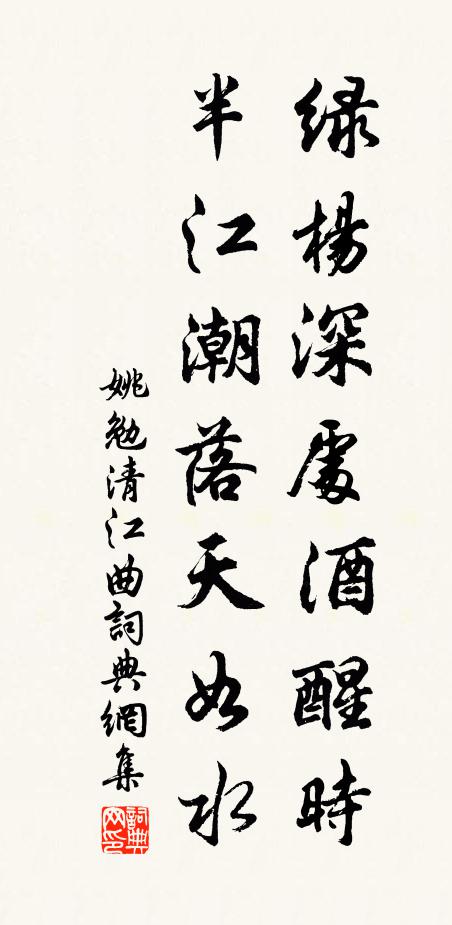 绿楊深處酒醒時
半江潮落天如水
姚勉清江曲詞典網集
詞典网印